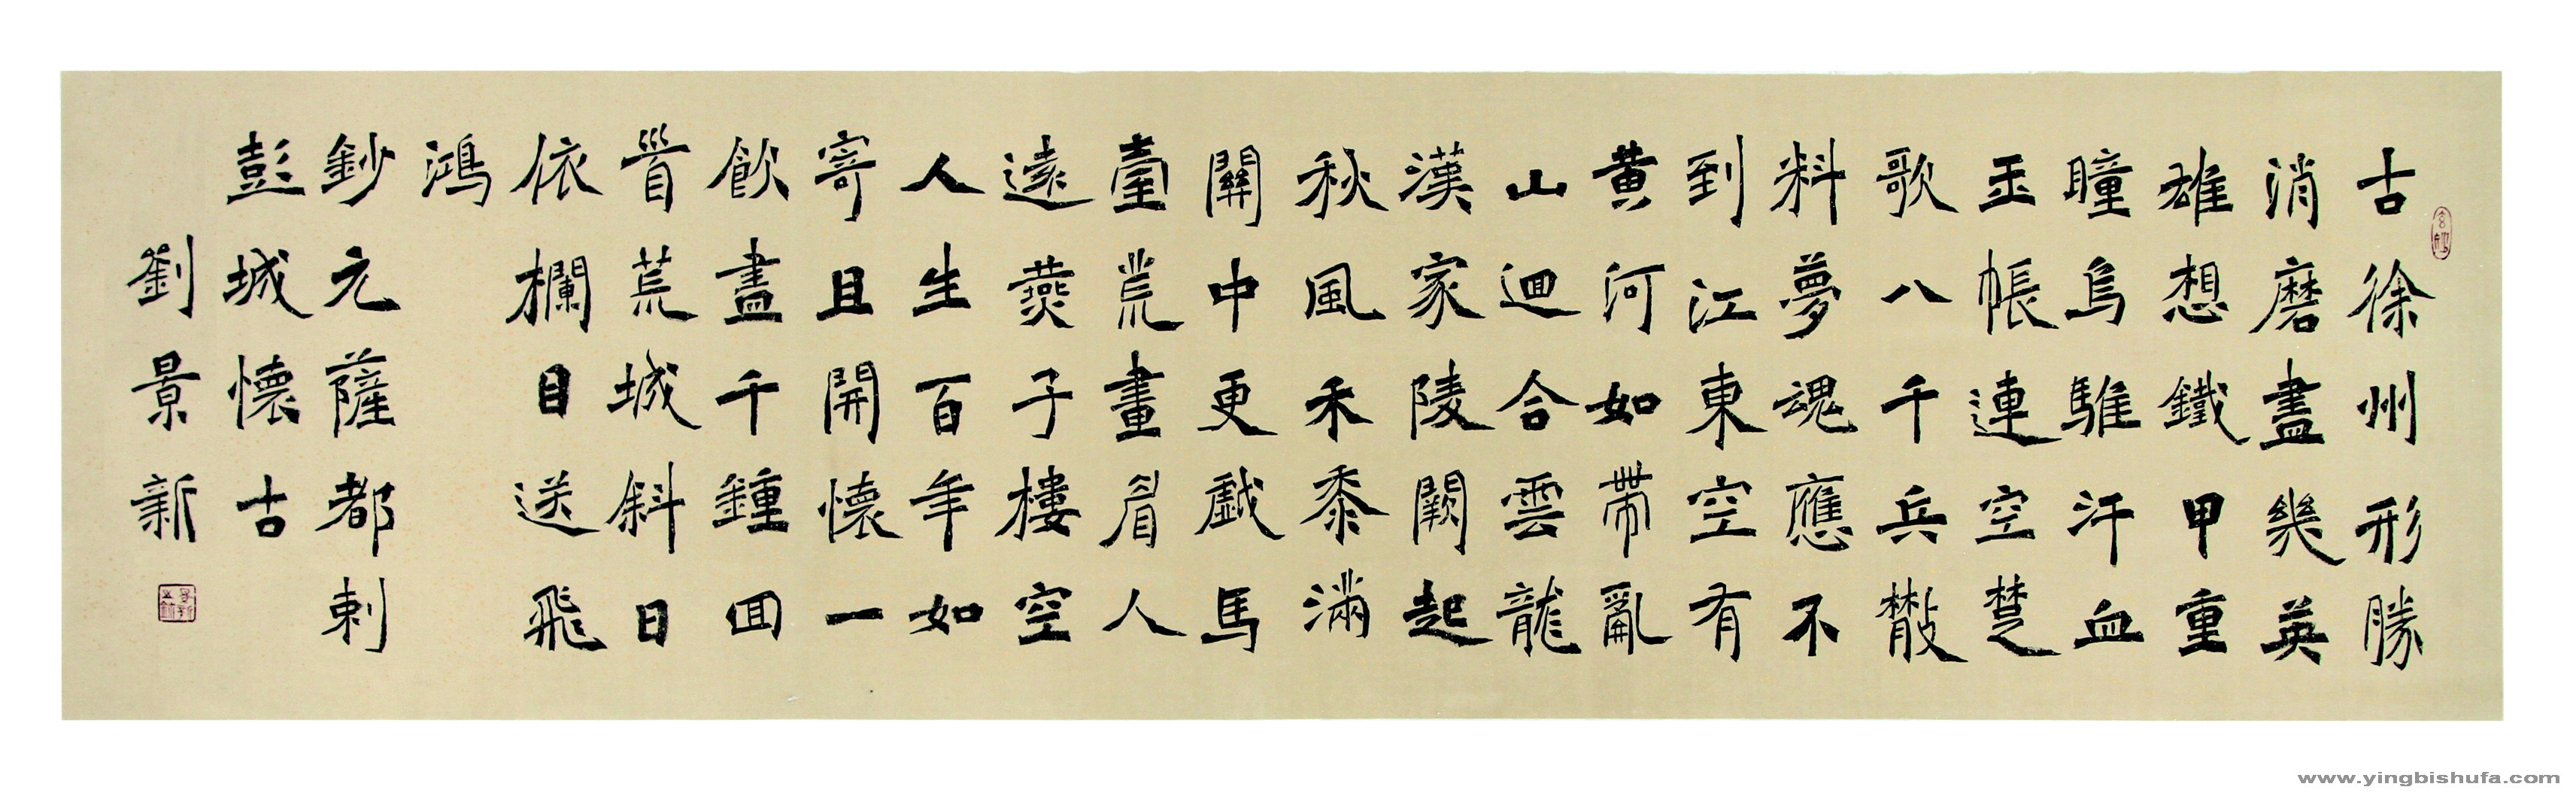 古徐州形勝
消磨盡幾英
雄想鐵甲重
瞳烏騅汗血
玉帳連空楚
歌八千兵散
料夢魂應不
到江東空有
黄河如帶亂
山迴合雲龍
漢家陵闕起
秋風禾黍滿
關中更戲馬
臺荒畫眉人
遠燕子樓空
人生百年如
寄且開懷一
飲盡千鍾回
首荒城斜日
依欄目送飛
鴻
鈔元薩都剌
彭城懷古
劉景新
www.yingbishufa.com